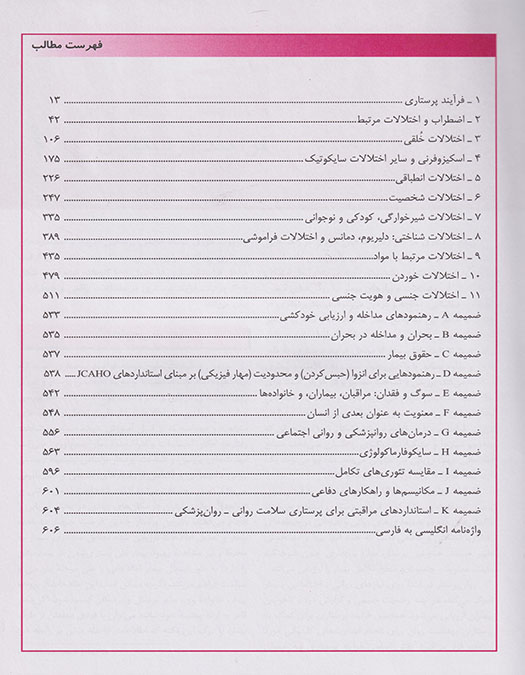 فهرست مطالب
۱ ـ فرآیند پرستاری ........ ۱۳
۲ ـ اضطراب و اختلالات مرتبط ........ ۴۲
۳ ـ اختلالات خُلقی ........ ۱۰۶
۴ ـ اسکیزوفرنی و سایر اختلالات سایکوتیک ........ ۱۷۵
۵ ـ اختلالات انطباقی ........ ۲۲۶
۶ ـ اختلالات شخصیت ........ ۲۴۷
۷ ـ اختلالات شیرخوارگی، کودکی و نوجوانی ........ ۳۳۵
۸ ـ اختلالات شناختی: دلیریوم، دمانس و اختلالات فراموشی ........ ۳۸۹
۹ ـ اختلالات مرتبط با مواد ........ ۴۳۵
۱۰ ـ اختلالات خوردن ........ ۴۷۹
۱۱ ـ اختلالات جنسی و هویت جنسی ........ ۵۱۱
ضمیمه A ـ رهنمودهای مداخله و ارزیابی خودکشی ........ ۵۳۳
ضمیمه B ـ بحران و مداخله در بحران ........ ۵۳۵
ضمیمه C ـ حقوق بیمار ........ ۵۳۷
ضمیمه D ـ رهنمودهایی برای انزوا (حبس‌کردن) و محدودیت (مهار فیزیکی) بر مبنای استانداردهای JCAHO ..... ۵۳۸
ضمیمه E ـ سوگ و فقدان: مراقبان، بیماران، و خانواده‌ها ........ ۵۴۲
ضمیمه F ـ معنویت به عنوان بعدی از انسان ........ ۵۴۸
ضمیمه G ـ درمان‌های روانپزشکی و روانی اجتماعی ........ ۵۵۶
ضمیمه H ـ سایکوفارماکولوژی ........ ۵۶۳
ضمیمه I ـ مقایسه تئوری‌های تکامل ........ ۵۹۶
ضمیمه J ـ مکانیسم‌ها و راهکارهای دفاعی ........ ۶۰۱
ضمیمه K ـ استانداردهای مراقبتی برای پرستاری سلامت روانی ـ روان‌پزشکی ........ ۶۰۴
واژه‌نامه انگلیسی به فارسی ........ ۶۰۶